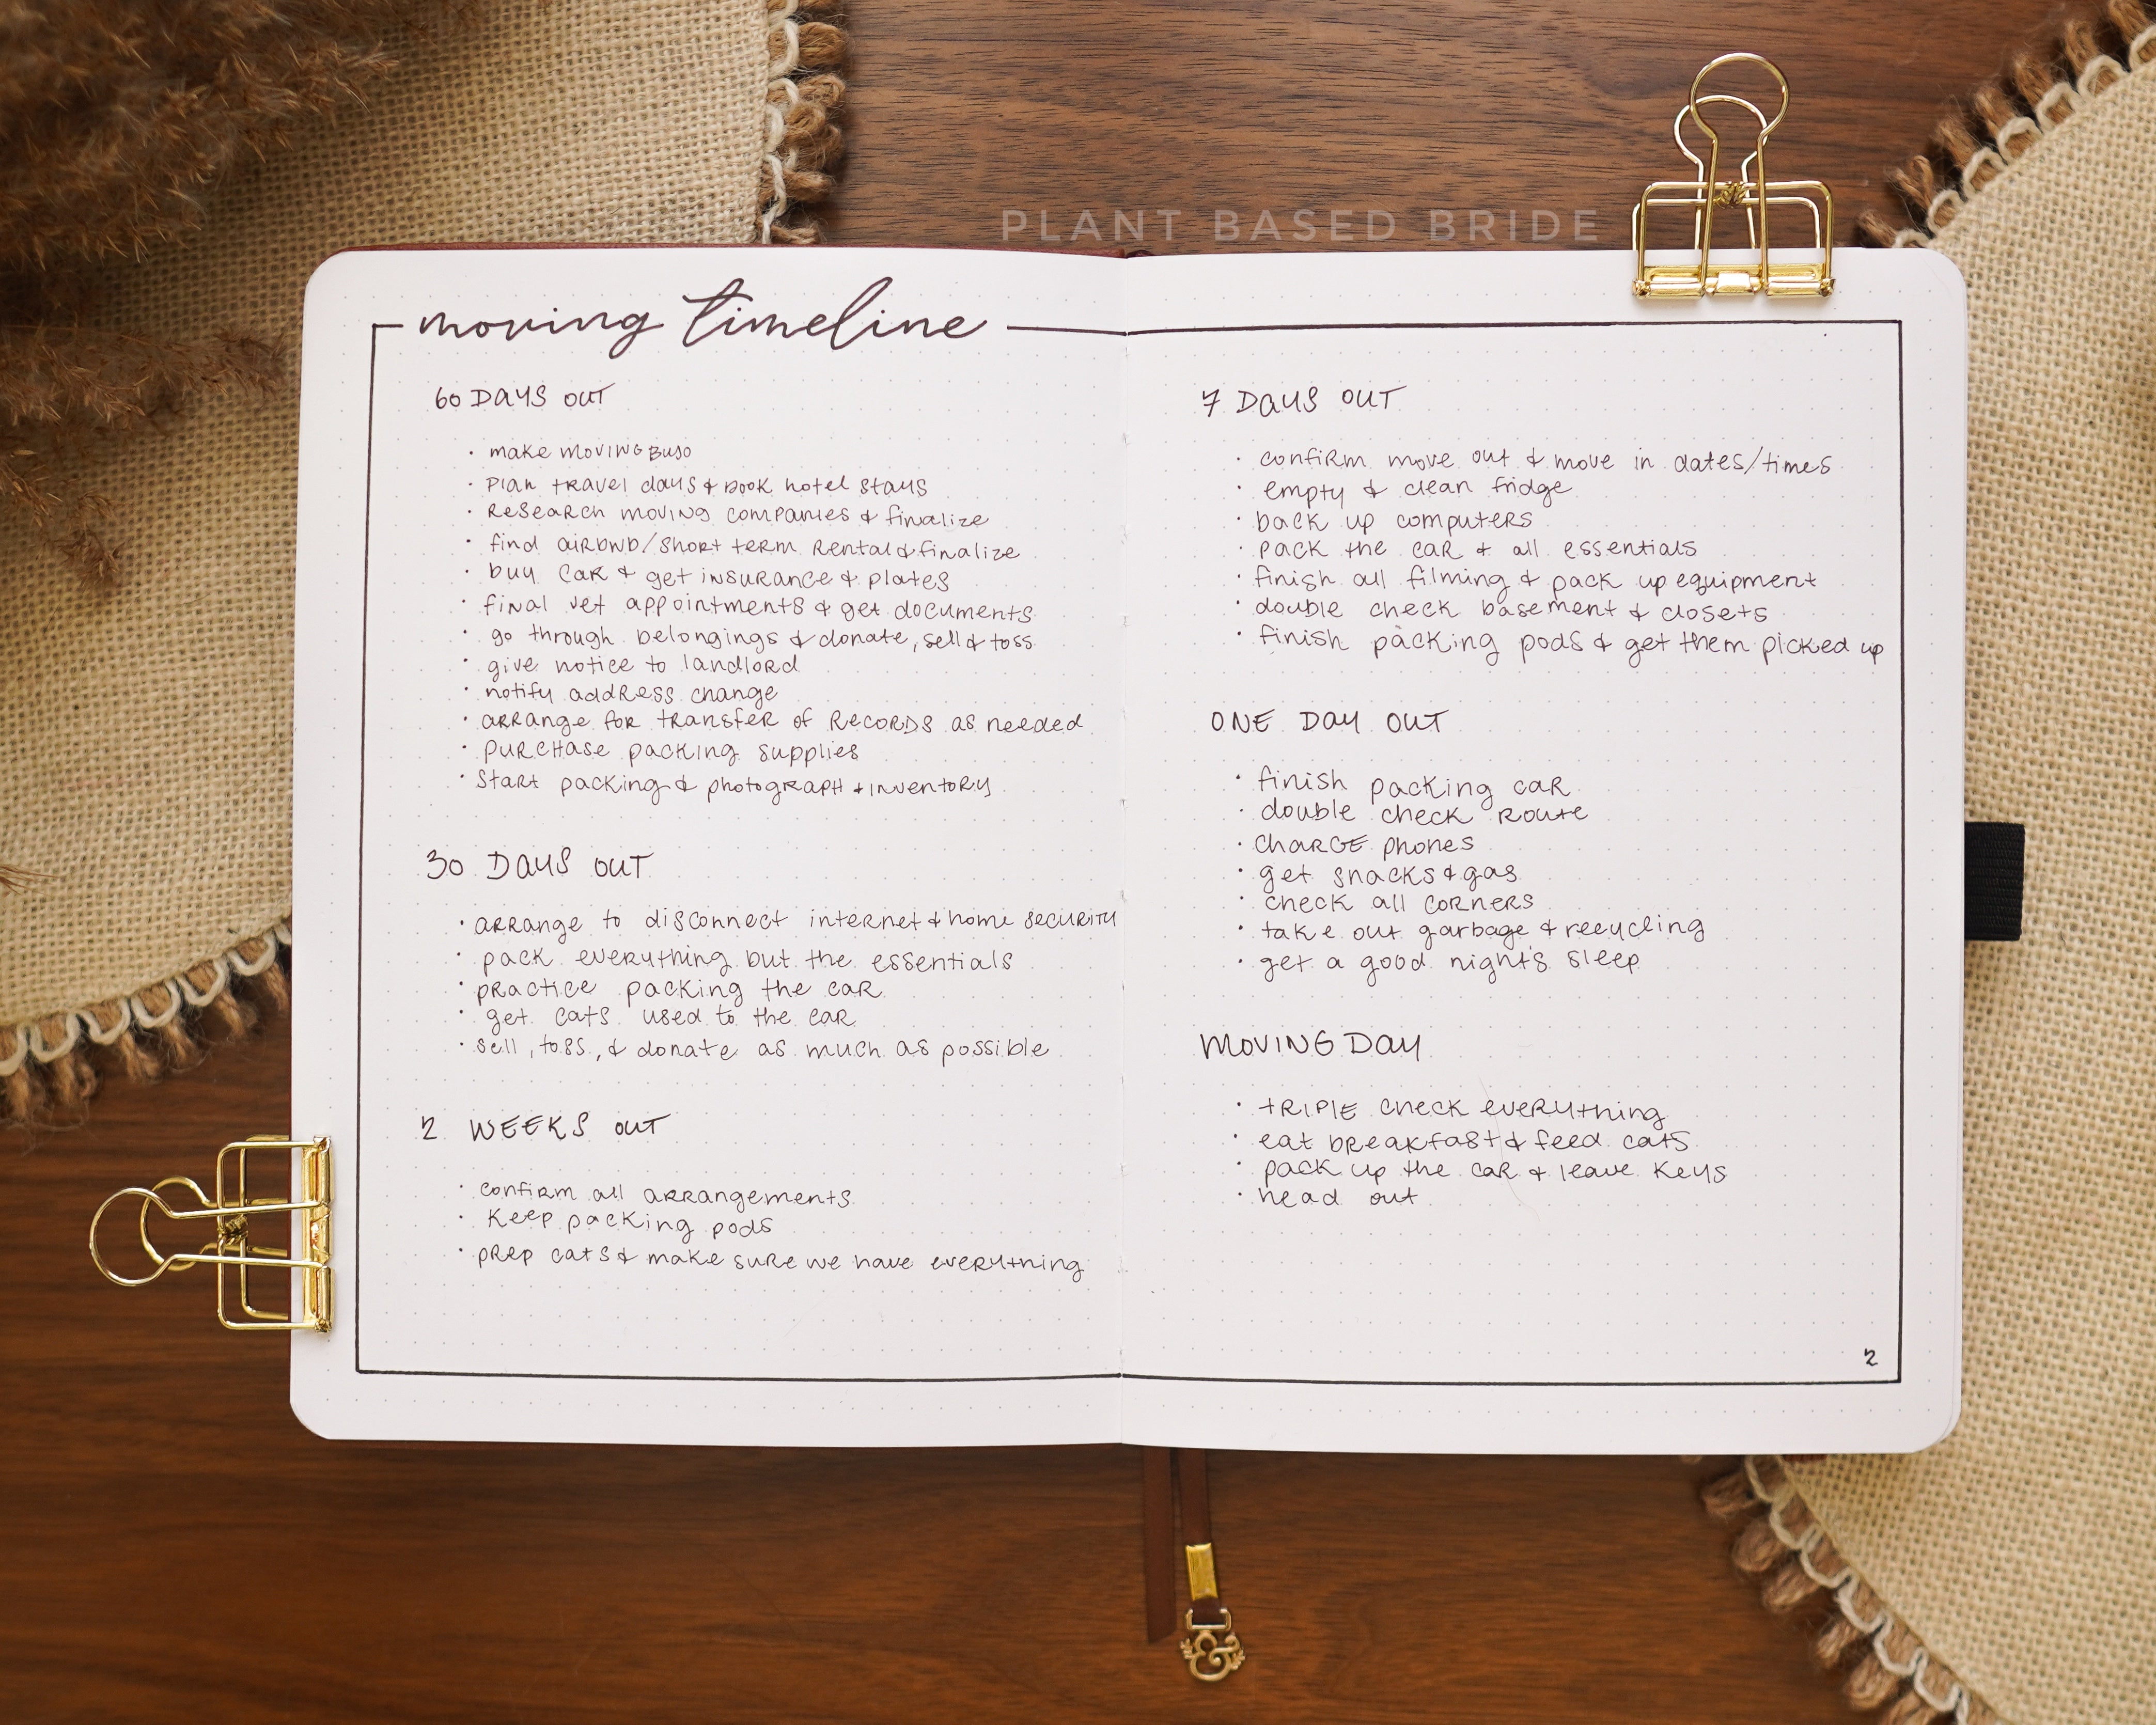 PLANT BASED BRIDE
moving timeline
60 DAYS OUT
· make MOVING BUJO
· Plan travel days & book hotel stays
· Research moving companies & finalize
· find airbnb/short term rental & finalize
· buy car & get insurance & plates
· final vet appointments & get documents
· go through belongings & donate, sell & toss
· give notice to landlord
· notify address change
· arrange for transfer of records as needed
· purchase packing supplies
· Start packing & photograph + inventory
30 DAYS OUT
· arrange to disconnect internet & home security
· pack everything but the essentials
· practice packing the car
· get cats used to the car
· sell, toss, & donate as much as possible
2 WEEKS OUT
· confirm all arrangements
· Keep packing pods
· prep cats & make sure we have everything
7 DAYS OUT
· confirm move out & move in dates/times
· empty & clean fridge
· back up computers
· pack the car & all essentials
· finish all filming & pack up equipment
· double check basement & closets
· finish packing pods & get them picked up
ONE DAY OUT
· finish packing car
· double check route
· charge phones
· get snacks & gas
· check all corners
· take out garbage & recycling
· get a good night's sleep
MOVING DAY
· triple check everything
· eat breakfast & feed cats
· pack up the car & leave keys
· head out
2